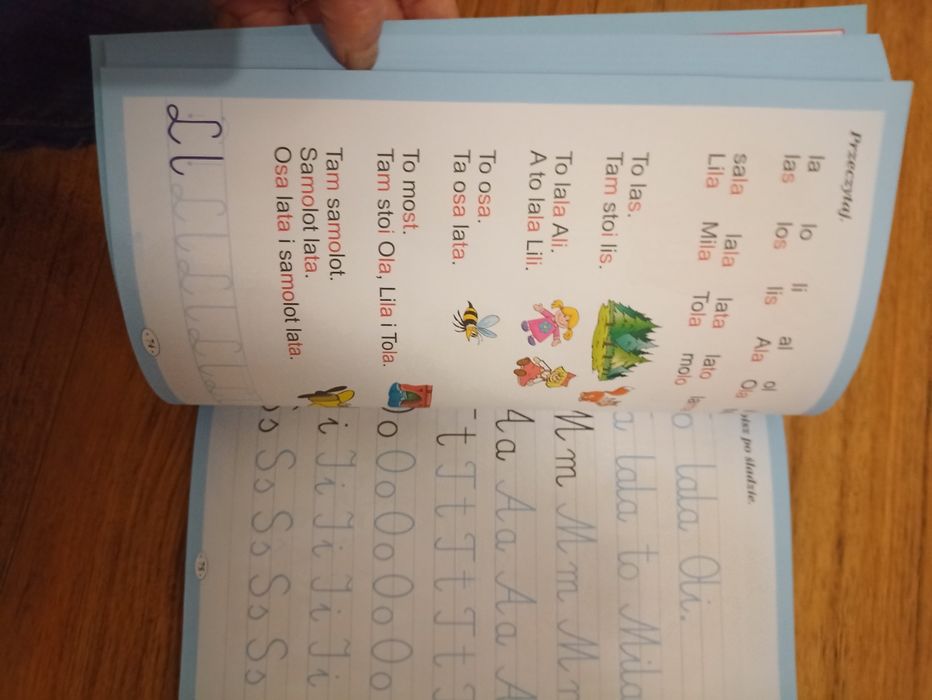 Przeczytaj.
la lo li al ol
las los lis Ala Ola
sala lala lata lato
Lila Mila Tola molo
To las.
Tam stoi lis.
To lala Ali.
A to lala Lili.
To osa.
Ta osa lata.
To most.
Tam stoi Ola, Lila i Tola.
Tam samolot.
Samolot lata.
Osa lata i samolot lata.
L l L l L l L l L l
74
po śladzie.
lala Oli.
lala to Mila
M m M m M m
A a A a A a A
t T t T t T t T
o O o O o O o O o
i I i I i I i I i
s S s S s S s S s S s
75